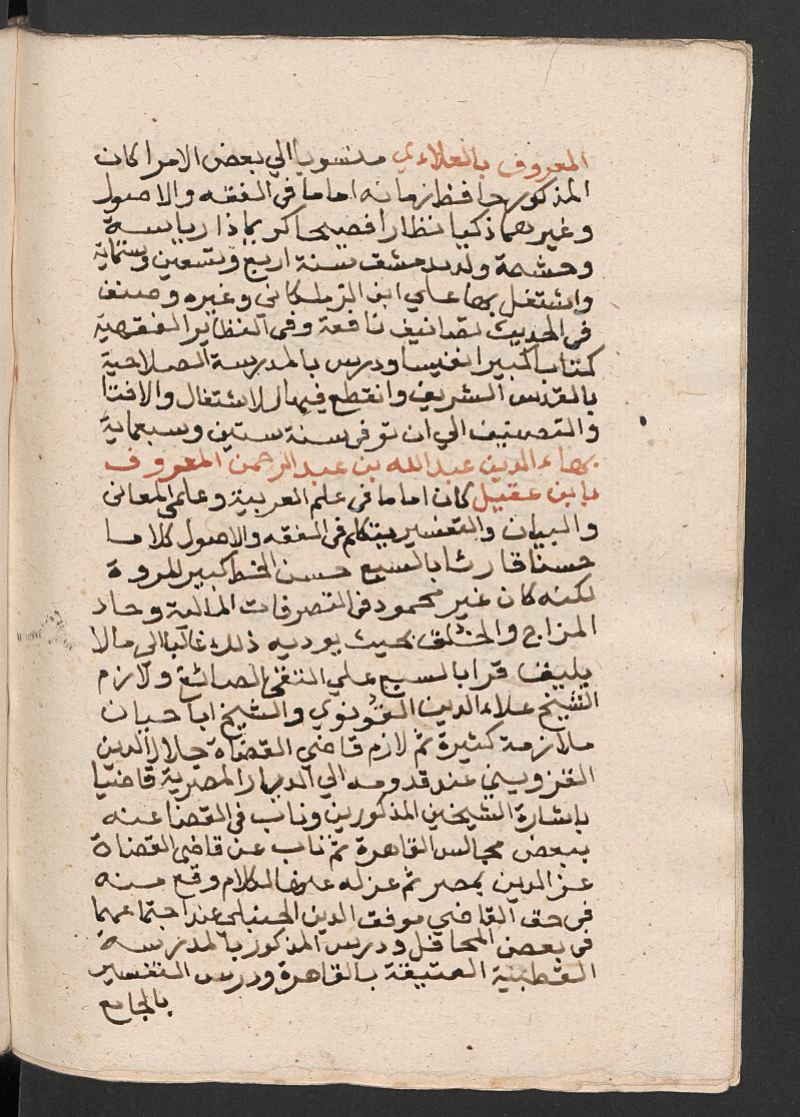 المعروف بالعلاءي منسوبا الي بعض الامرا كان
المذكور حافظ زمانه اماما في الفقه والاصول
وغيرهما ذكيا نظارا فصيحا كريما ذا رياسة
وحشمة ولد بدمشق سنة اربع وتسعين وستماية
واشتغل بها علي ابن الزملكاني وغيره وصنف
في الحديث تصانيف نافعة وفي النظاير الفقهية
كتابا كبيرا نفيسا ودرس بالمدرسة الصلاحية
بالقدس الشريف وانقطع فيها للاشتغال والافتا
والتصنيف الي ان توفي سنة ستين وسبعماية
بهاء الدين عبد الله بن عبد الرحمن المعروف
بابن عقيل كان اماما في علم العربية وعلمي المعاني
والبيان والتفسير يتكلم في الفقه والاصول كلاما
حسنا قارئا بالسبع حسن الخط كبير المروة
لكنه كان غير محمود في التصرفات المالية وحاد
المزاج والخلق بحيث يوديه ذلك غالبا الي مالا
يليق قرا بالسبع علي التقي الصائغ ولازم
الشيخ علاء الدين القونوي والشيخ ابا حيان
ملازمة كثيرة ثم لازم قاضي القضاة جلال الدين
القزويني عند قدومه الي الديار المصرية قاضيا
باشارة الشيخين المذكورين وناب في القضا عنه
ببعض مجالس القاهرة ثم ناب عن قاضي القضاة
عز الدين بمصر ثم عزله لكلام وقع منه
في حق القاضي موفق الدين الحنبلي عند اجتماعهما
في بعض المحافل ودرس المذكور بالمدرسة
القطبية العتيقة بالقاهرة ودرس التفسير
بالجامع